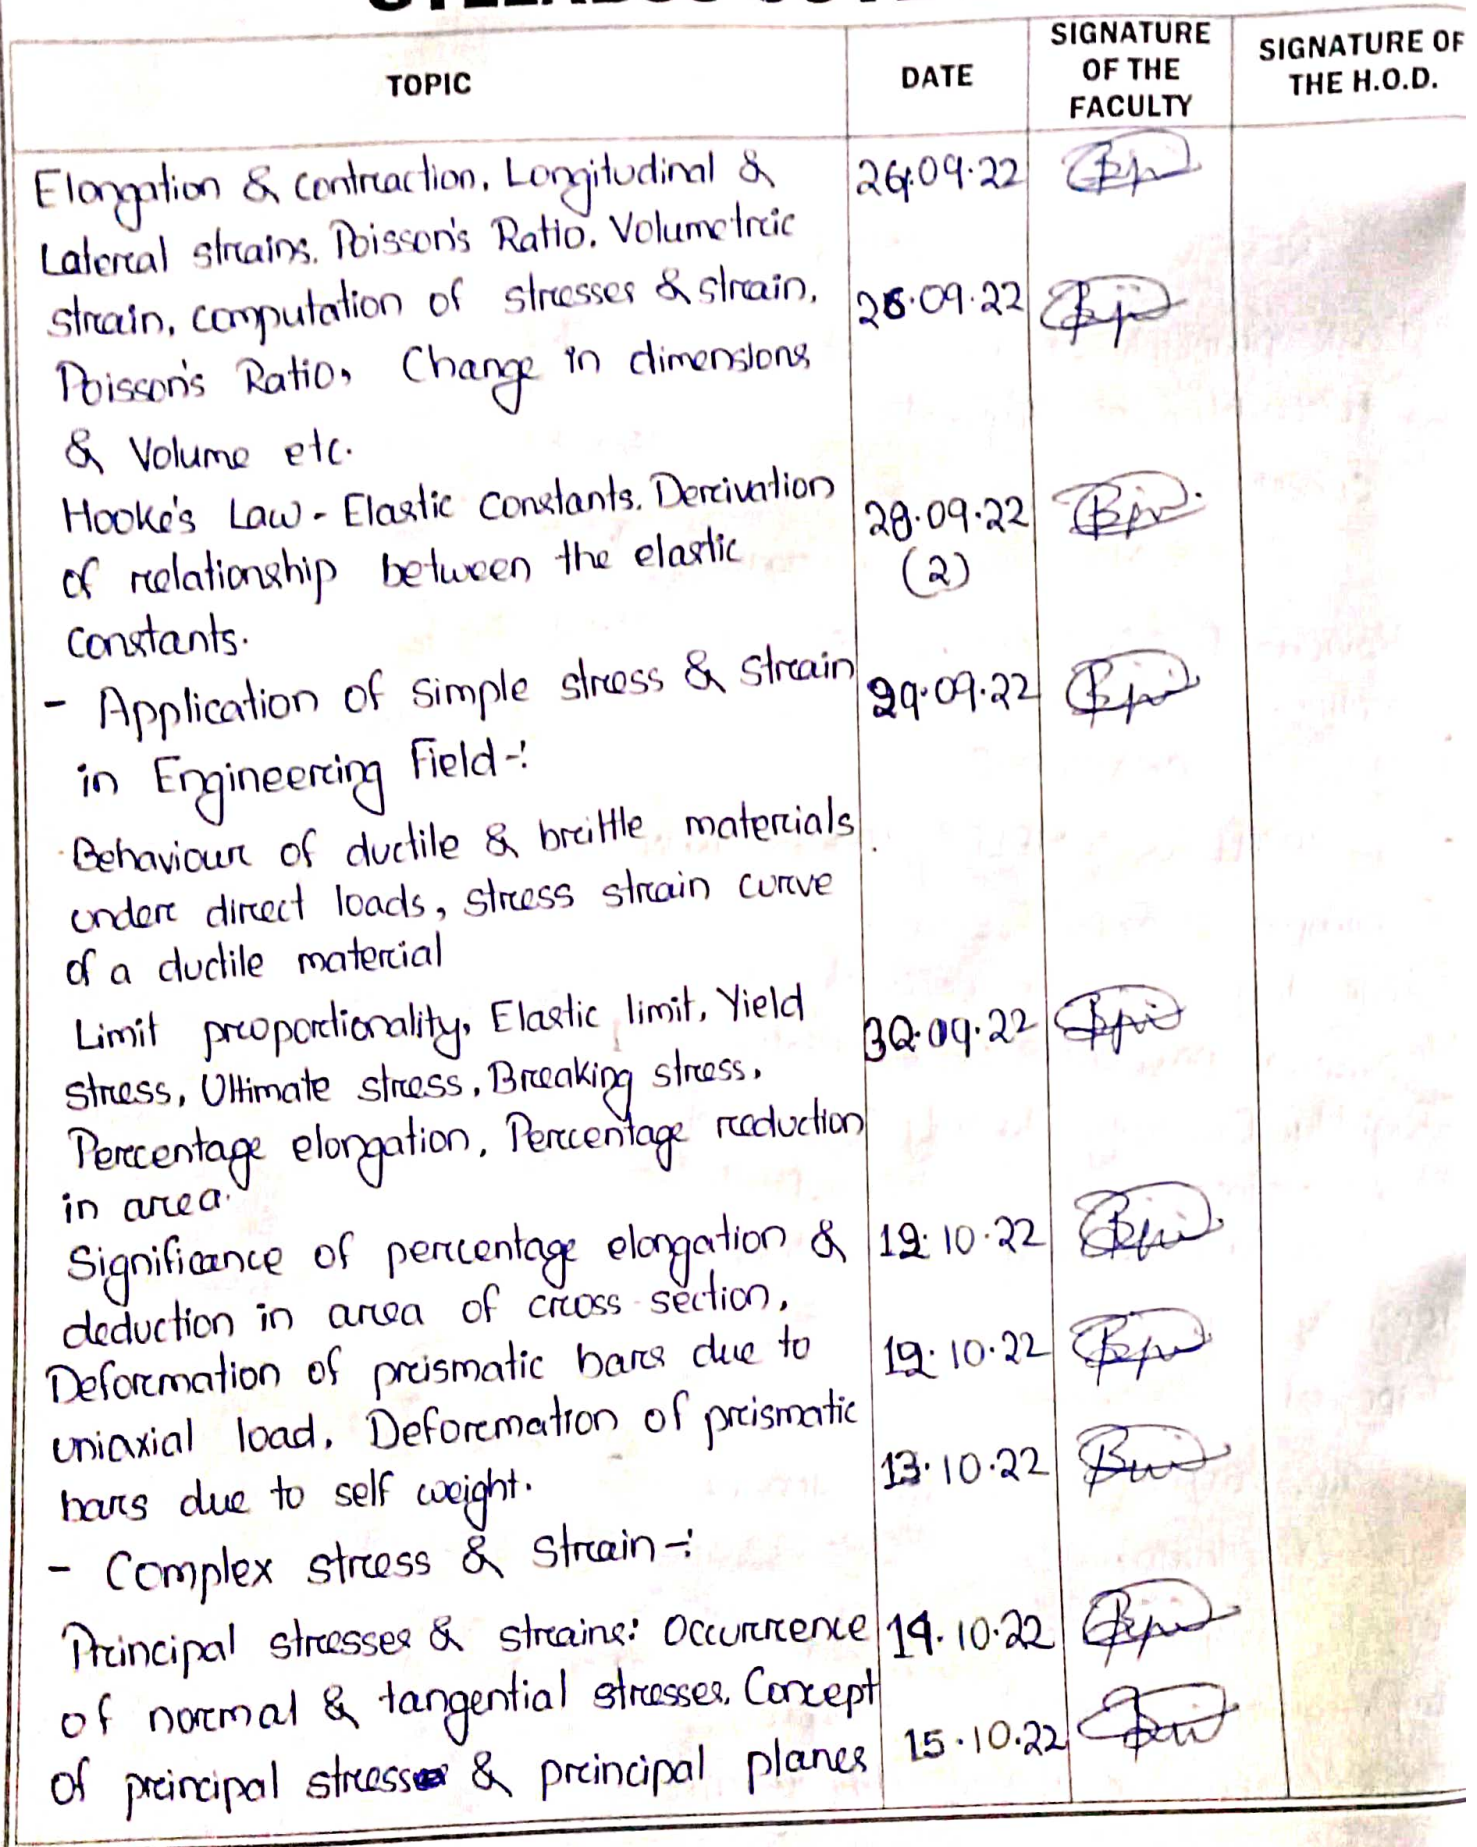 TOPIC
DATE
SIGNATURE
OF THE
FACULTY
SIGNATURE OF
THE H.O.D.
Elongation & contraction, Longitudinal &
26.09.22
Lateral strains, Poisson's Ratio, Volumetric
strain, computation of stresses & strain,
26.09.22
Poisson's Ratio, Change in dimensions
& Volume etc.
Hooke's Law - Elastic Constants, Derivation
28.09.22
of relationship between the elastic
(2)
constants.
- Application of simple stress & strain
29.09.22
in Engineering Field -:
Behaviour of ductile & brittle materials
under direct loads, stress strain curve
of a ductile material
Limit proportionality, Elastic limit, Yield
30.09.22
stress, Ultimate stress, Breaking stress,
Percentage elongation, Percentage reduction
in area.
Significance of percentage elongation &
12.10.22
deduction in area of cross section,
Deformation of prismatic bars due to
12.10.22
uniaxial load, Deformation of prismatic
13.10.22
bars due to self weight.
- Complex stress & Strain -:
Principal stresses & strains: Occurrence
14.10.22
of normal & tangential stresses, Concept
of principal stress & principal planes
15.10.22